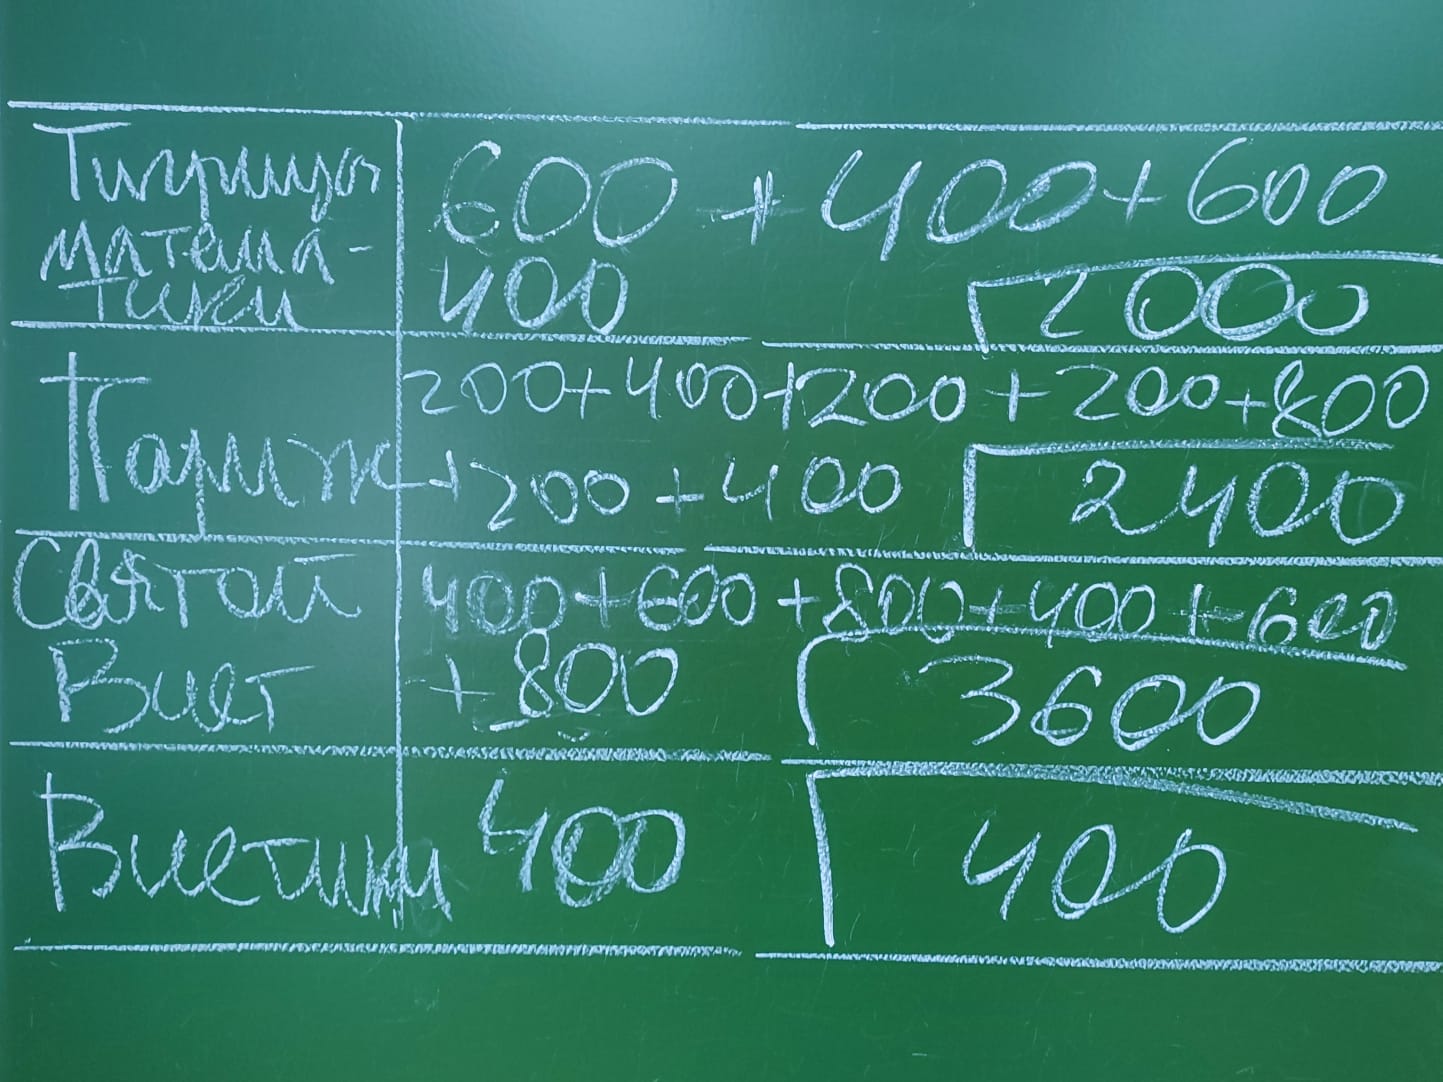 Тигрицы 600 + 400 + 600
матема-
тики 400 2000
Париж 200+400+200+200+800
+200+400 2400
Святой 400+600+800+400+600
Виет +800 3600
Виетики 400 400